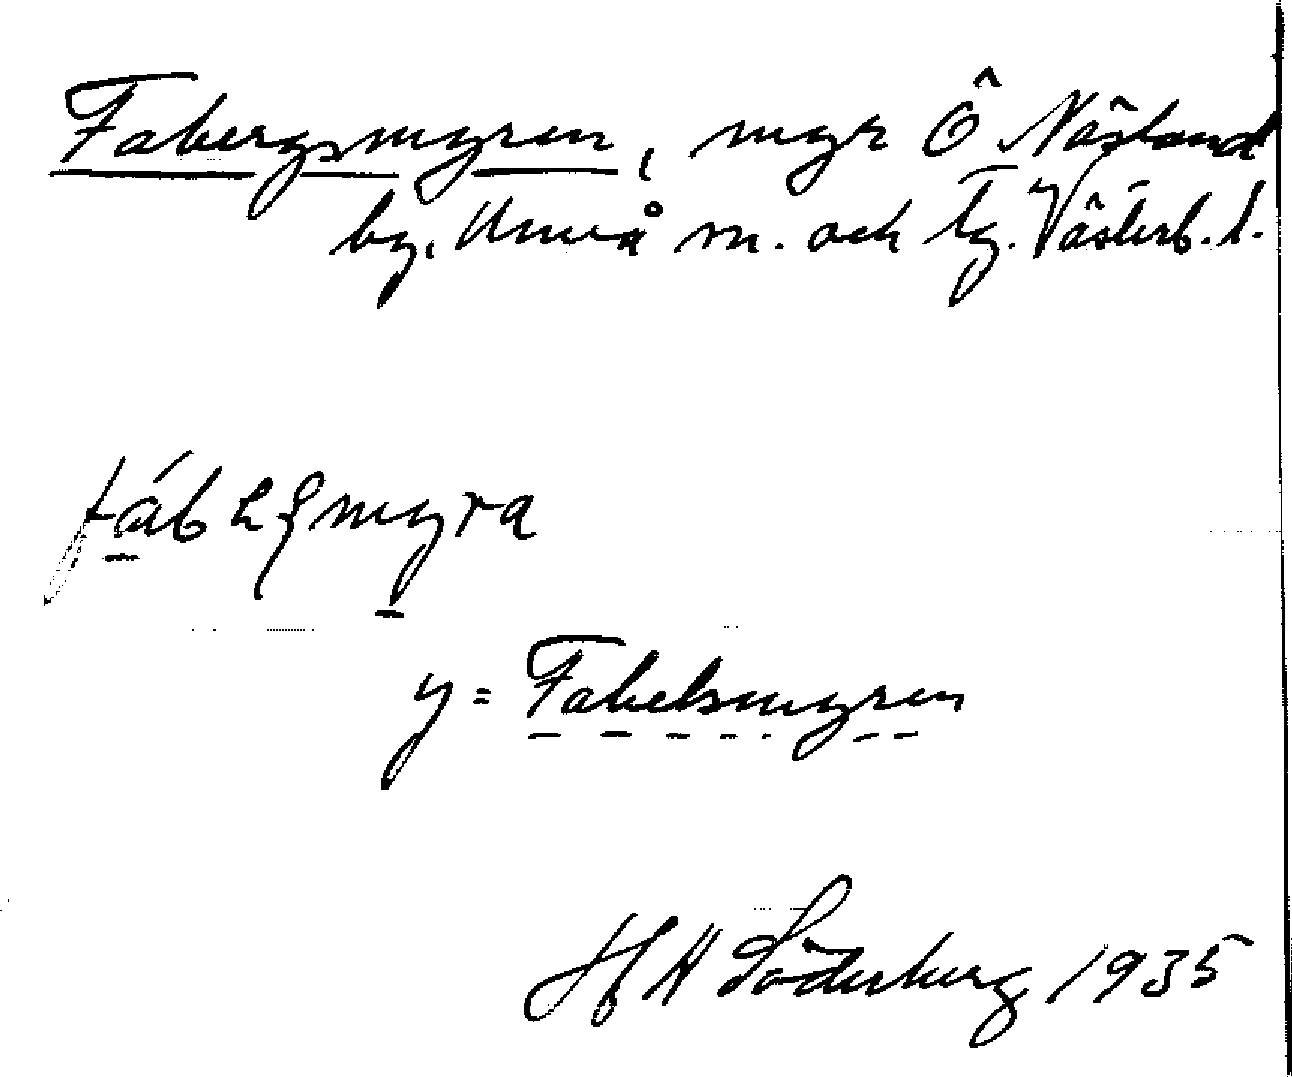 Fabergsmyren, myr Ö Näsland
by, Umeå m. och tg. Västerb. l.
y = Fabelsmyren
H Söderberg 1935